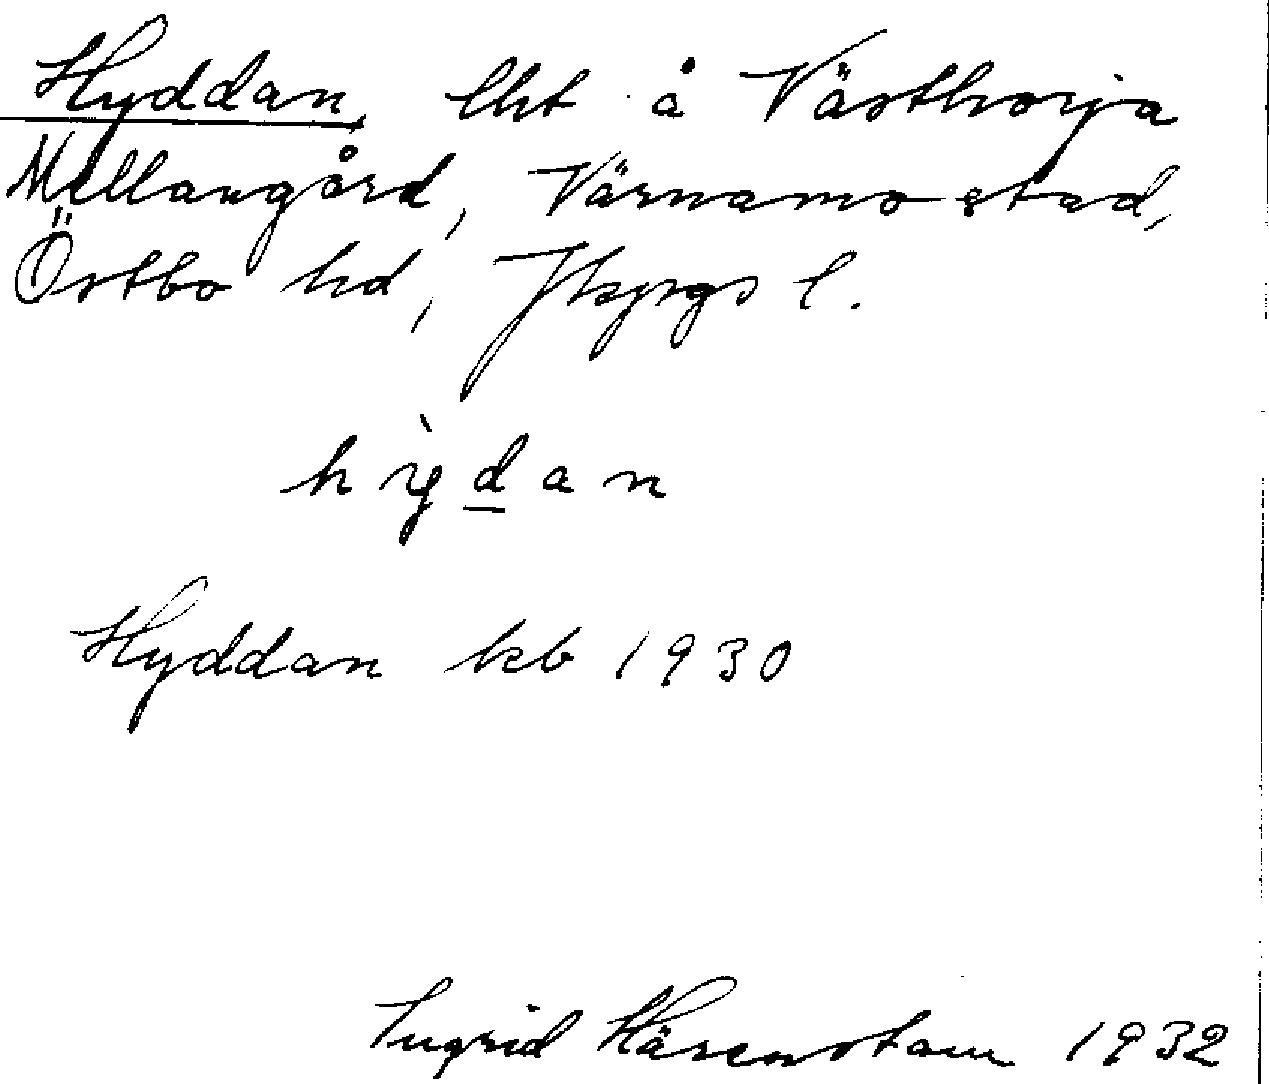 Hyddan, lht å Västhorja
Mellangård, Värnamo stad,
Östbo hd, Jkpgs l.
hỳdan
Hyddan kb 1930
Ingrid Härenstam 1932